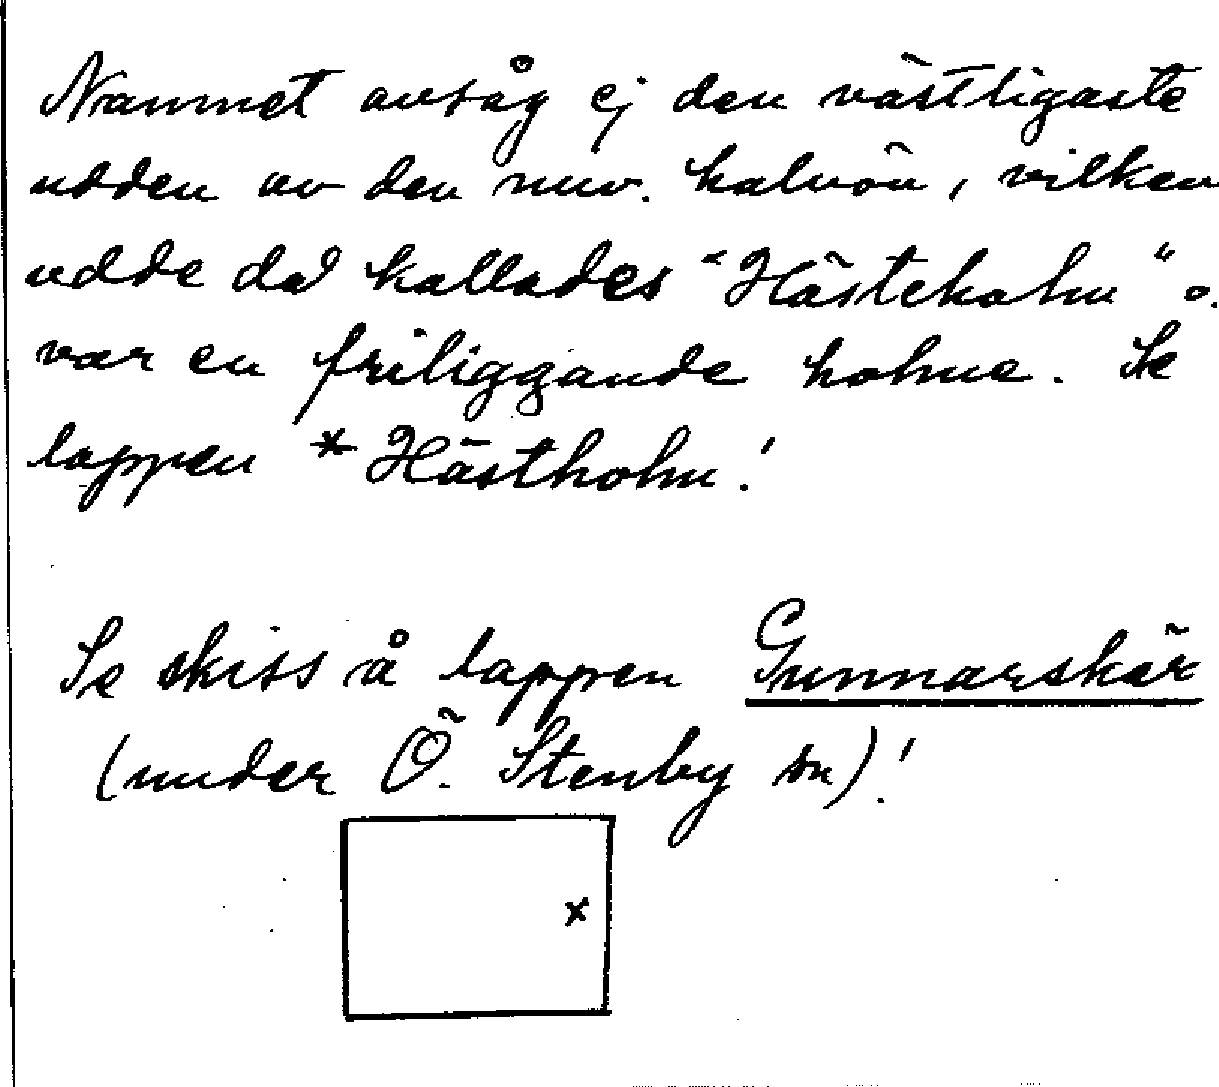 Namnet avsåg ej den västligaste
udden av den nuv. halvön, vilken
udde då kallades "Hästeholm" o.
var en friliggande holme. Se
lappen *Hästholm!
Se skiss å lappen Gunnarskär
(under Ö. Stenby sn)!
x